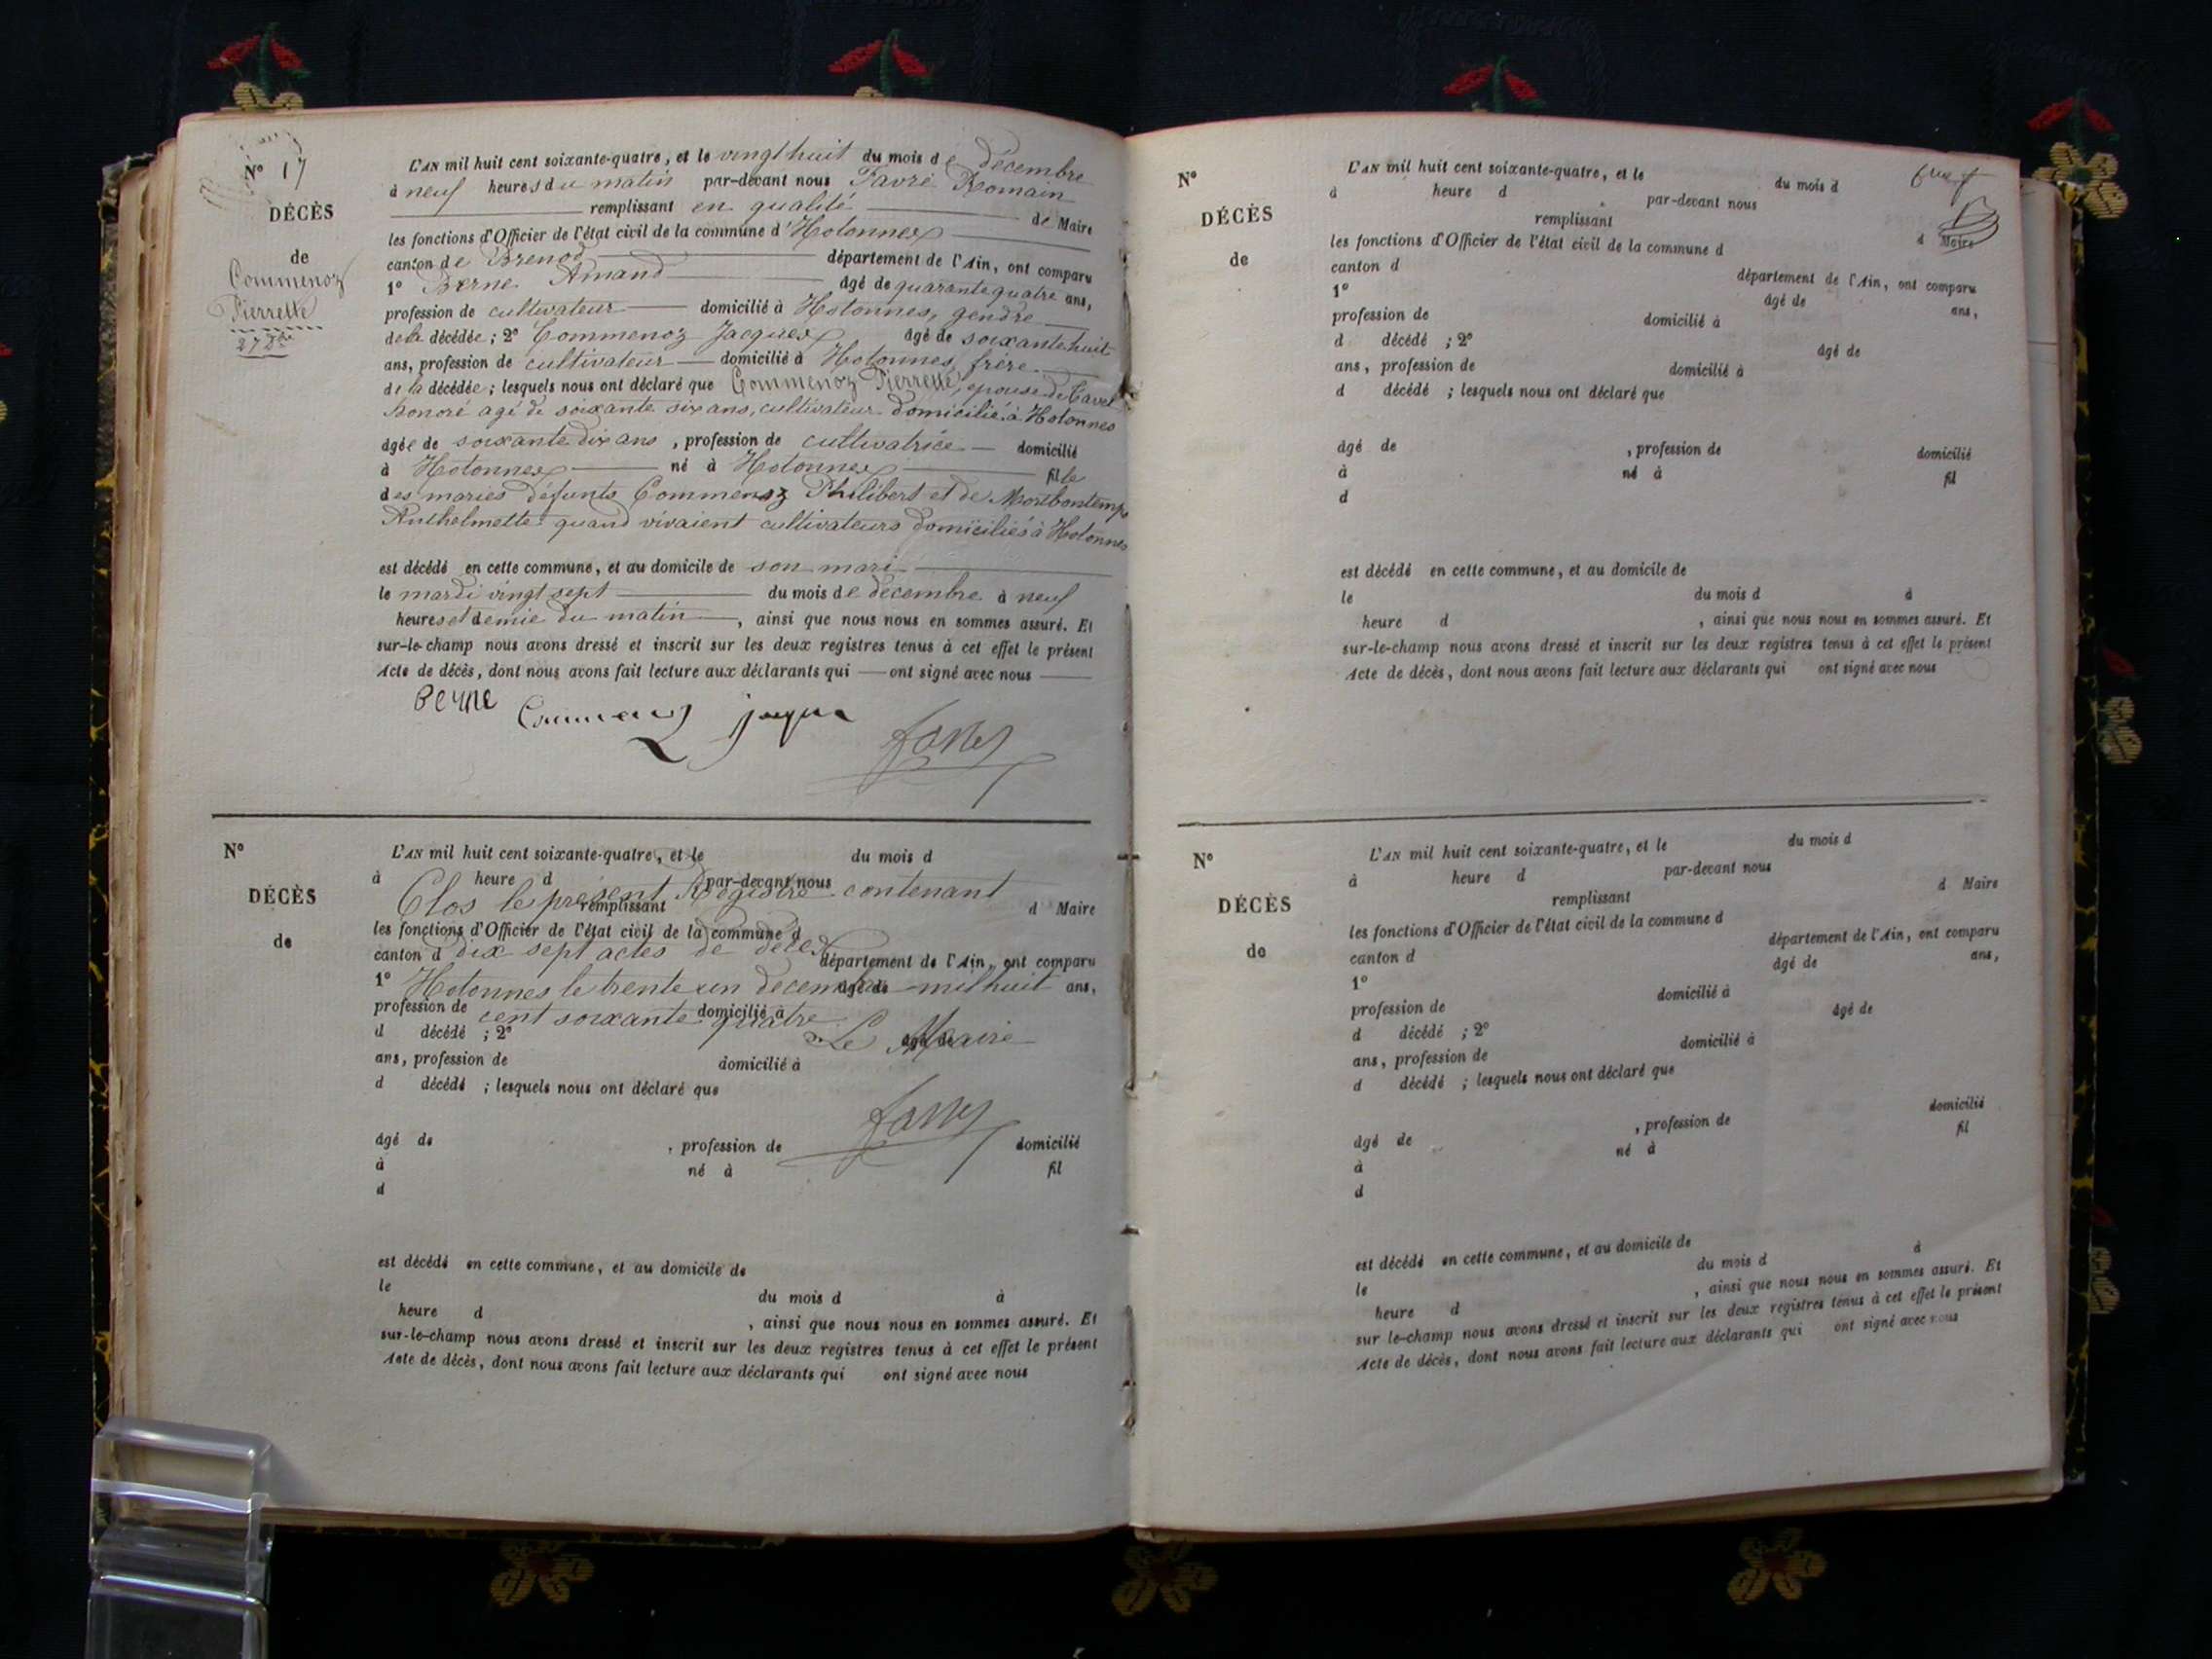 N° 17
DÉCÈS
de
Commenoz
Pierrette
27 Xbre
L'AN mil huit cent soixante-quatre, et le vingt huit du mois de décembre
à neuf heures du matin par-devant nous Favre Romain
remplissant en qualité de Maire
les fonctions d'Officier de l'état civil de la commune d'Hotonnes
canton de Brenod département de l'Ain, ont comparu
1° Berne Amand âgé de quarante quatre ans,
profession de cultivateur domicilié à Hotonnes, gendre
de la décédée ; 2° Commenoz Jacques âgé de soixante huit
ans, profession de cultivateur domicilié à Hotonnes, frère
de la décédée ; lesquels nous ont déclaré que Commenoz Pierrette, épouse de Cavet
honoré agé de soixante six ans, cultivateur domicilié à Hotonnes
âgée de soixante dix ans, profession de cultivatrice domicilié
à Hotonnes né à Hotonnes fille
des mariés défunts Commenoz Philibert et de Montbontemps
Anthelmette quand vivaient cultivateurs domiciliés à Hotonnes
est décédé en cette commune, et au domicile de son mari
le mardi vingt sept du mois de décembre à neuf
heures et demie du matin, ainsi que nous nous en sommes assuré. Et
sur-le-champ nous avons dressé et inscrit sur les deux registres tenus à cet effet le présent
Acte de décès, dont nous avons fait lecture aux déclarants qui ont signé avec nous
Berne Commenoz jacque
Favre
N°
DÉCÈS
de
L'AN mil huit cent soixante-quatre, et le du mois d
à heure d par-devant nous
Clos le présent Registre contenant
remplissant d Maire
les fonctions d'Officier de l'état civil de la commune d
canton d département de l'Ain, ont comparu
dix sept actes de décès
1° âgé de ans,
Hotonnes le trente un décembre mil huit
profession de domicilié à
cent soixante quatre
d décédé ; 2° âgé de
Le Maire
ans, profession de domicilié à
d décédé ; lesquels nous ont déclaré que
Favre
âgé de , profession de domicilié
à né à fil
d
est décédé en cette commune, et au domicile de
le du mois d à
heure d , ainsi que nous nous en sommes assuré. Et
sur-le-champ nous avons dressé et inscrit sur les deux registres tenus à cet effet le présent
Acte de décès, dont nous avons fait lecture aux déclarants qui ont signé avec nous
N°
DÉCÈS
de
L'AN mil huit cent soixante-quatre, et le du mois d
à heure d par-devant nous
remplissant d Maire
les fonctions d'Officier de l'état civil de la commune d
canton d département de l'Ain, ont comparu
1° âgé de ans,
profession de domicilié à
d décédé ; 2° âgé de
ans, profession de domicilié à
d décédé ; lesquels nous ont déclaré que
âgé de , profession de domicilié
à né à fil
d
est décédé en cette commune, et au domicile de
le du mois d à
heure d , ainsi que nous nous en sommes assuré. Et
sur-le-champ nous avons dressé et inscrit sur les deux registres tenus à cet effet le présent
Acte de décès, dont nous avons fait lecture aux déclarants qui ont signé avec nous
N°
DÉCÈS
de
L'AN mil huit cent soixante-quatre, et le du mois d
à heure d par-devant nous
remplissant d Maire
les fonctions d'Officier de l'état civil de la commune d
canton d département de l'Ain, ont comparu
1° âgé de ans,
profession de domicilié à
d décédé ; 2° âgé de
ans, profession de domicilié à
d décédé ; lesquels nous ont déclaré que
âgé de , profession de domicilié
à né à fil
d
est décédé en cette commune, et au domicile de
le du mois d à
heure d , ainsi que nous nous en sommes assuré. Et
sur le-champ nous avons dressé et inscrit sur les deux registres tenus à cet effet le présent
Acte de décès, dont nous avons fait lecture aux déclarants qui ont signé avec nous